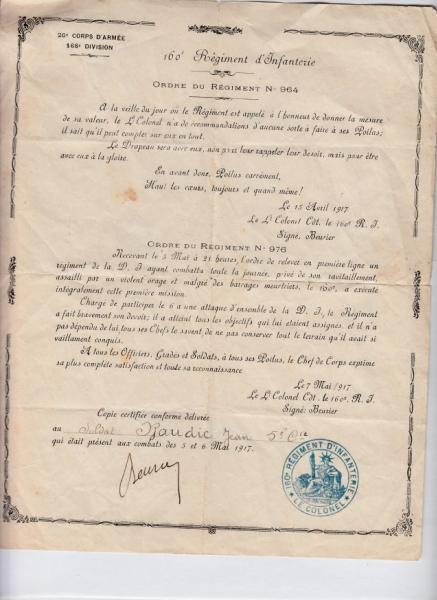 20e CORPS D'ARMÉE
168e DIVISION
160e Régiment d'Infanterie
ORDRE DU RÉGIMENT No 964
A la veille du jour où le Régiment est appelé à l'honneur de donner la mesure
de sa valeur, le Lt Colonel n'a de recommandations d'aucune sorte à faire à ses Poilus;
il sait qu'il peut compter sur eux en tout.
Le Drapeau sera avec eux, non pour leur rappeler leur devoir, mais pour être
avec eux à la gloire.
En avant donc, Poilus carrément,
Haut les cœurs, toujours et quand même!
Le 15 Avril 1917
Le Lt Colonel Cdt. le 160e R. I.
Signé, Beurier
ORDRE DU RÉGIMENT No 976
Recevant le 5 Mai à 21 heures, l'ordre de relever en première ligne un
régiment de la D. I ayant combattu toute la journée, privé de son ravitaillement,
assailli par un violent orage et malgré des barrages meurtriers, le 160e, a exécuté
intégralement cette première mission.
Chargé de participer le 6 à une attaque d'ensemble de la D. I., le Régiment
a fait bravement son devoir; il a atteint tous les objectifs qui lui étaient assignés. et il n'a
pas dépendu de lui tous ses Chefs le savent, de ne pas conserver tout le terrain qu'il avait si
vaillamment conquis.
A tous les Officiers, Gradés et Soldats, à tous ses Poilus, le Chef de Corps exprime
sa plus complète satisfaction et toute sa reconnaissance
Le 7 Mai 1917
Le Lt Colonel Cdt. le 160e R. I.
Signé: Beurier
Copie certifiée conforme délivrée
au Soldat Jean 5e Cie
qui était présent aux combats des 5 et 6 Mai 1917.
160e RÉGIMENT D'INFANTERIE
LE COLONEL